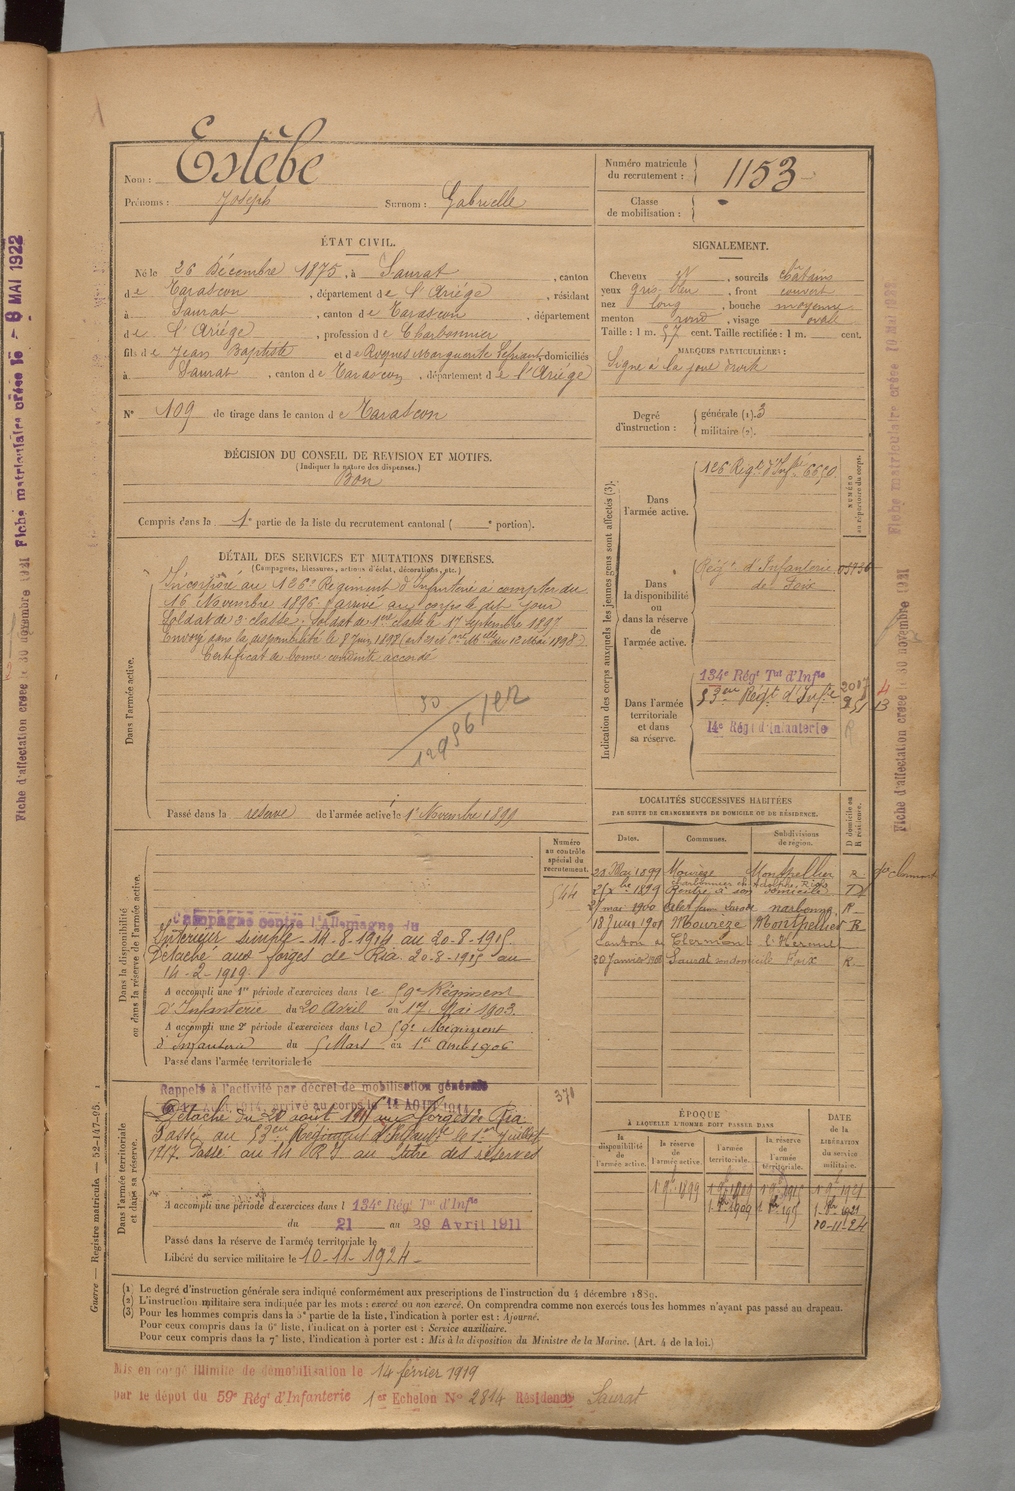 Estèbe
Nom :
Prénoms : Joseph Surnom : Gabrielle
Numéro matricule
du recrutement : 1153
Classe
de mobilisation :
ÉTAT CIVIL.
Né le 26 Décembre 1875, à Saurat, canton
de Tarascon, département de l'Ariège, résidant
à Saurat, canton de Tarascon, département
de l'Ariège, profession de Charbonnier
fils de Jean Baptiste et de Rognes Marguerite domiciliés
à Saurat, canton de Tarascon, département de l'Ariège
N° 109 de tirage dans le canton de Tarascon
SIGNALEMENT.
Cheveux, sourcils châtains
yeux gris bleu, front couvert
nez long, bouche moyenne
menton rond, visage ovale
Taille : 1 m. 57 cent. Taille rectifiée : 1 m. cent.
MARQUES PARTICULIÈRES :
Signe à la joue droite
Degré
d'instruction :
générale (1). 3
militaire (2).
DÉCISION DU CONSEIL DE REVISION ET MOTIFS.
(Indiquer la nature des dispenses.)
Bon
Compris dans la 1e partie de la liste du recrutement cantonal ( e portion).
DÉTAIL DES SERVICES ET MUTATIONS DIVERSES.
(Campagnes, blessures, actions d'éclat, décorations, etc.)
Dans l'armée active.
Incorporé au 126e Régiment d'Infanterie à compter du
16 Novembre 1896, arrivé au corps le dit jour
Soldat de 2e classe, soldat de 1ère classe le 17 septembre 1897
Envoyé dans la disponibilité le 8 Juin 1898 du 12 Mai 1898)
Certificat de bonne conduite accordé
Passé dans la réserve de l'armée active le 1er Novembre 1899
Indication des corps auxquels les jeunes gens sont affectés (3).
NUMÉRO
au répertoire du corps.
Dans
l'armée active.
126 Régt d'Infie
Dans
la disponibilité
ou
dans la réserve
de
l'armée active.
Régt d'Infanterie
de Foix
Dans l'armée
territoriale
et dans
sa réserve.
134e Régt Tal d'Infie
53ème Régt d'Infie
14e Régt d'Infanterie
LOCALITÉS SUCCESSIVES HABITÉES
PAR SUITE DE CHANGEMENTS DE DOMICILE OU DE RÉSIDENCE.
Dates. Communes. Subdivisions
de région. D domicile ou
R résidence.
20 Mai 1899 Mourèze Montpellier R
1899 Rentré à son domicile
27 mai 1900 Narbonne R
18 Juin 1901 Mourèze Montpellier R
Canton de Clermont l'Hérault
20 Janvier Saurat son domicile Foix R
Dans la disponibilité
ou dans la réserve de l'armée active.
Numéro
au contrôle
spécial du
recrutement.
544
Campagne contre l'Allemagne du
Intérieur simple - 14-8-1914 au 20-8-1915.
Détaché aux forges de Ria. 20-8-1915 au
14-2-1919.
A accompli une 1re période d'exercices dans le 59e Régiment
d'Infanterie du 20 Avril au 17 Mai 1903.
A accompli une 2e période d'exercices dans le 59e Régiment
d'Infanterie du 5 Mars au 1er Avril 1906
Passé dans l'armée territoriale le
Dans l'armée territoriale
et dans sa réserve.
Rappelé à l'activité par décret de mobilisation générale
arrivé au corps le 14 AOUT 1914
Détaché du 20 août 1915 aux forges de Ria
Passé au 53ème Régiment d'Infanterie le 1er Juillet
1917. Passé au 14 R.I au titre des réserves
A accompli une période d'exercices dans l 134e Régt Tal d'Infie
du 21 au 29 Avril 1911
Passé dans la réserve de l'armée territoriale le
Libéré du service militaire le 10-11-1924
ÉPOQUE
À LAQUELLE L'HOMME DOIT PASSER DANS
DATE
de la
LIBÉRATION
du service
militaire.
la
disponibilité
de
l'armée active.
la réserve
de
l'armée active
l'armée
territoriale.
la réserve
de
l'armée
territoriale.
1 9bre 1899 1 9bre 1909 1 9bre 1915 1 9bre 1921
10-11-24
(1) Le degré d'instruction générale sera indiqué conformément aux prescriptions de l'instruction du 4 décembre 1889.
(2) L'instruction militaire sera indiquée par les mots : exercé ou non exercé. On comprendra comme non exercés tous les hommes n'ayant pas passé au drapeau.
(3) Pour les hommes compris dans la 5e partie de la liste, l'indication à porter est : Ajourné.
Pour ceux compris dans la 6e liste, l'indication à porter est : Service auxiliaire.
Pour ceux compris dans la 7e liste, l'indication à porter est : Mis à la disposition du Ministre de la Marine. (Art. 4 de la loi.)
Mis en congé illimité de démobilisation le 14 février 1919
par le dépôt du 59e Régt d'Infanterie 1er Echelon N° 2814 Résidence Saurat
Guerre — Registre matricule. — 52-147-95.
Fiche d'affectation créée le 30 novembre 1931 Fiche matriculaire créée le - 8 MAI 1922
Fiche d'affectation créée le 30 novembre 1931